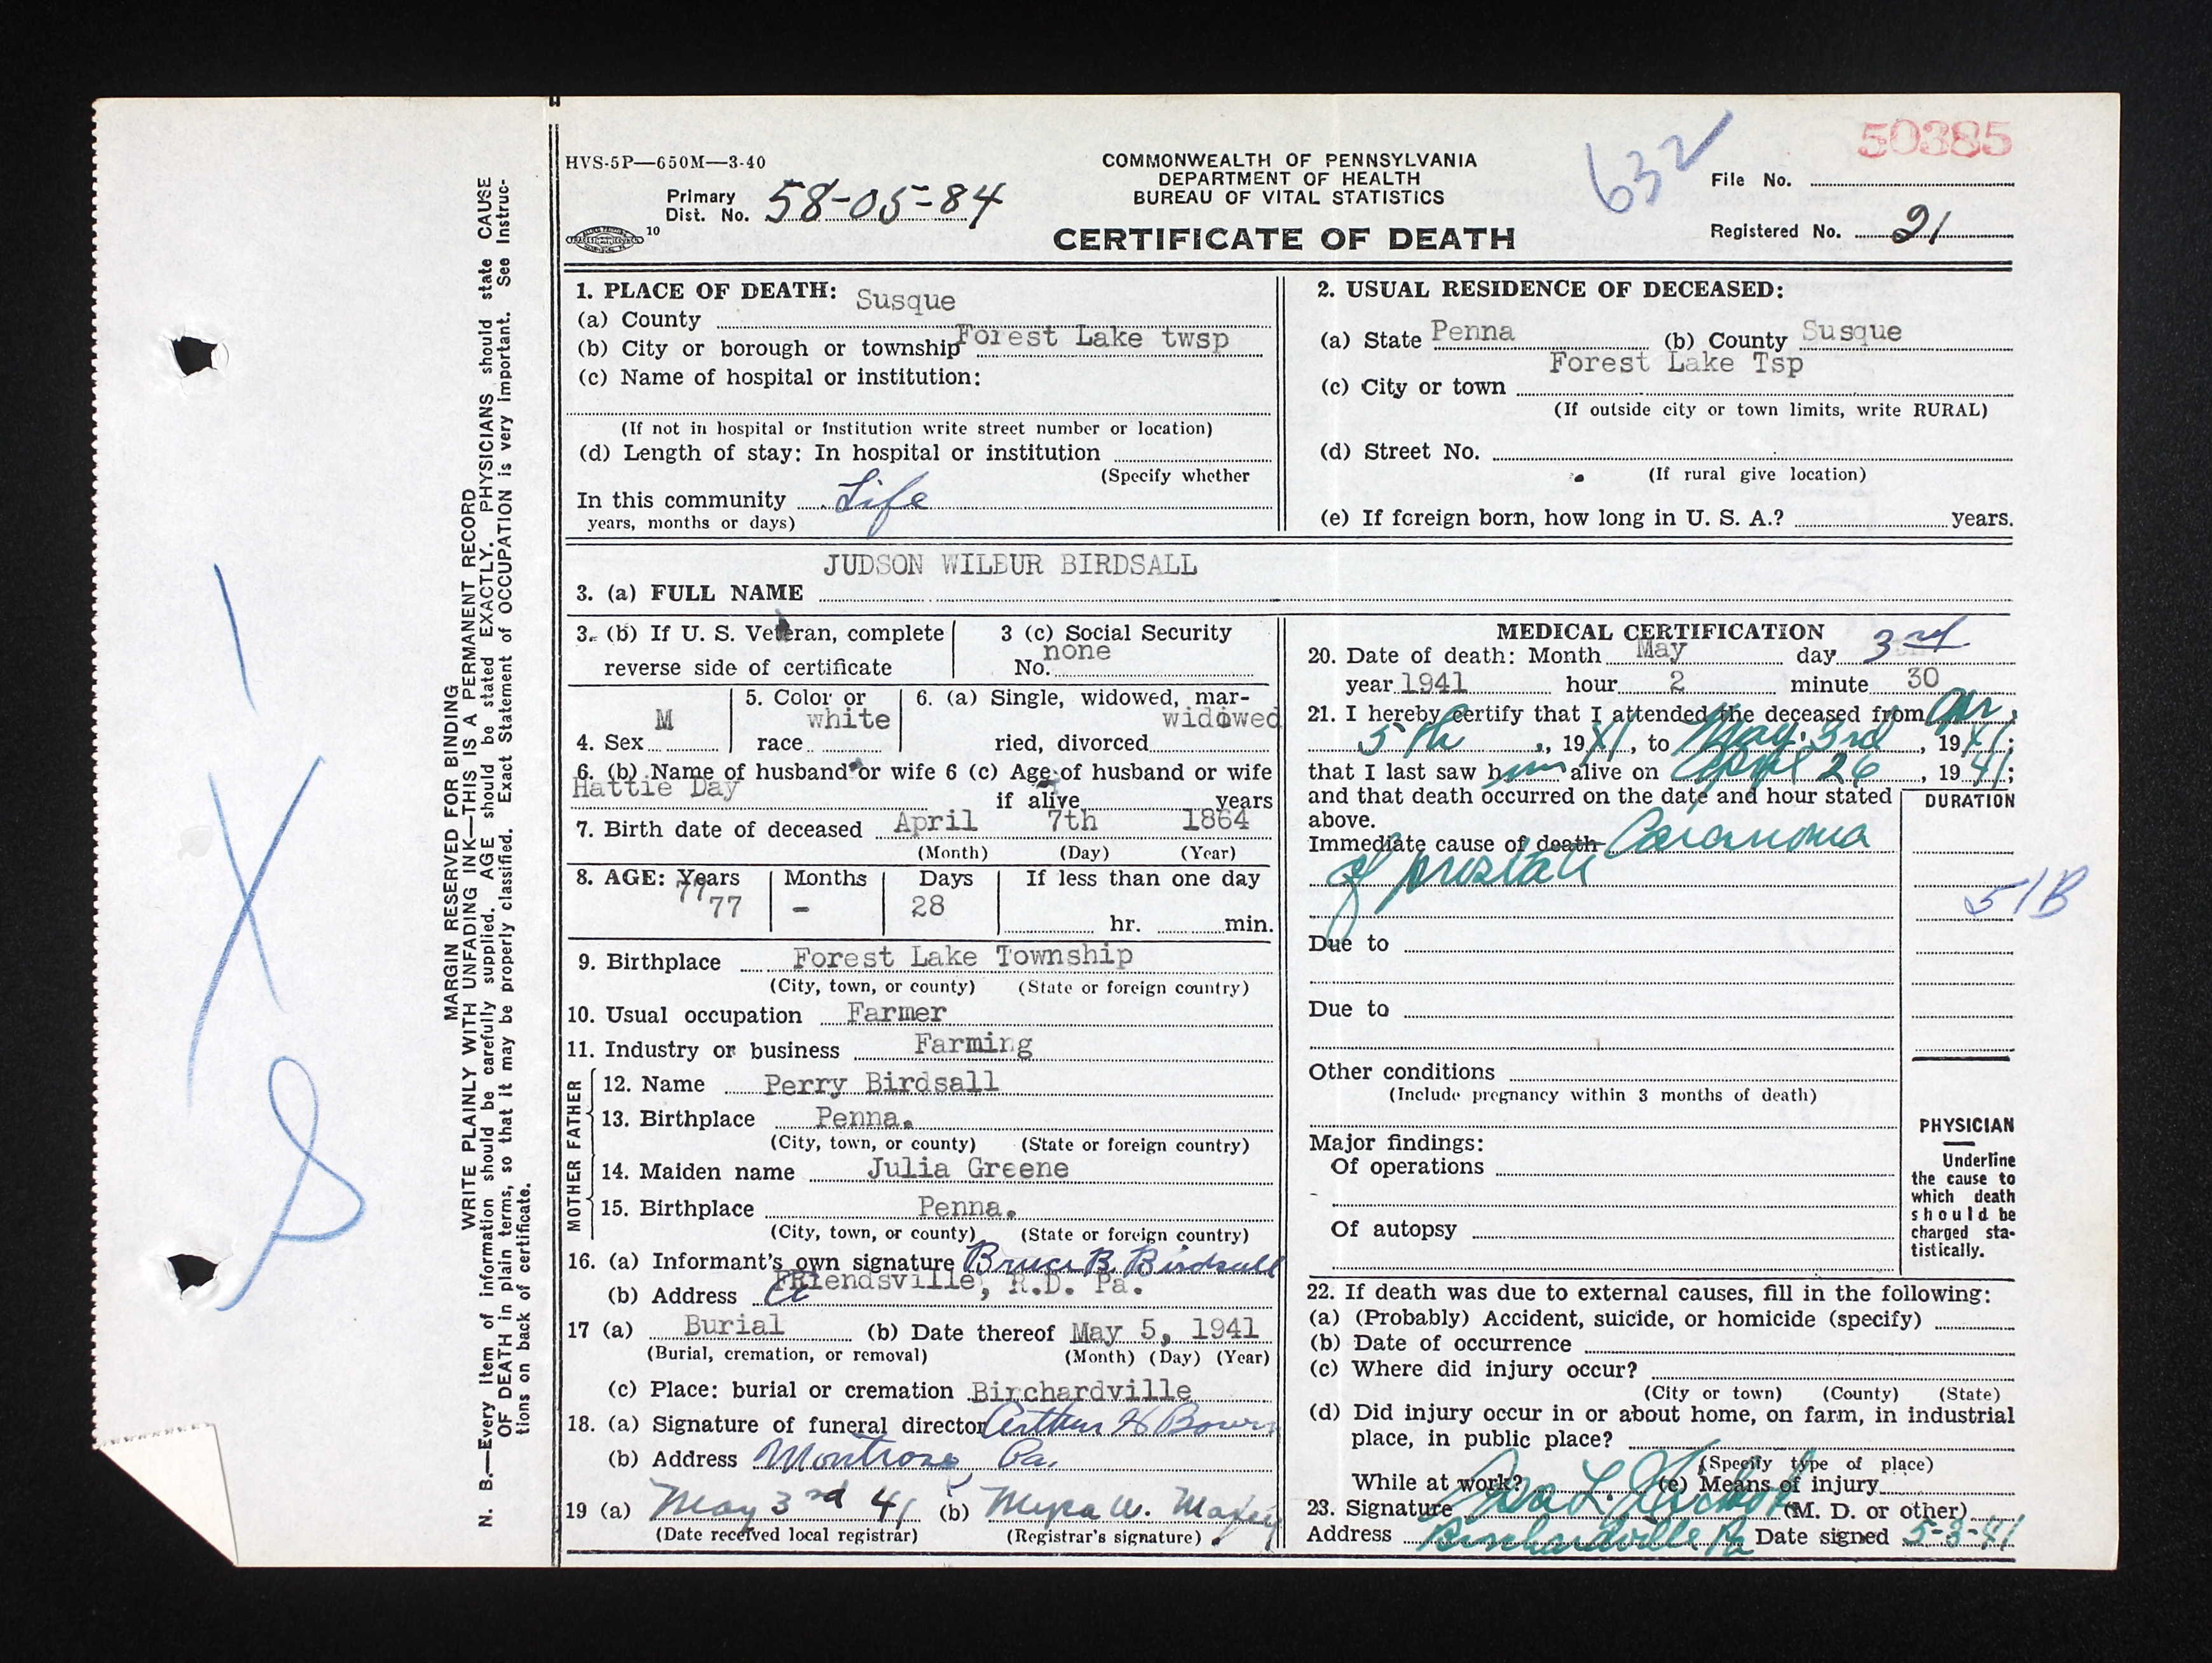 HVS-5P—650M—3-40
COMMONWEALTH OF PENNSYLVANIA
DEPARTMENT OF HEALTH
BUREAU OF VITAL STATISTICS
CERTIFICATE OF DEATH
Primary
Dist. No. 58-05-84
10
632
50385
File No.
Registered No. 21
1. PLACE OF DEATH:
(a) County Susque
(b) City or borough or township Forest Lake twsp
(c) Name of hospital or institution:
(If not in hospital or institution write street number or location)
(d) Length of stay: In hospital or institution
(Specify whether
In this community Life
years, months or days)
2. USUAL RESIDENCE OF DECEASED:
(a) State Penna (b) County Susque
(c) City or town Forest Lake Tsp
(If outside city or town limits, write RURAL)
(d) Street No.
(If rural give location)
(e) If foreign born, how long in U. S. A.? years.
JUDSON WILBUR BIRDSALL
3. (a) FULL NAME
3. (b) If U. S. Veteran, complete
reverse side of certificate
3 (c) Social Security
No. none
4. Sex M
5. Color or
race white
6. (a) Single, widowed, mar-
ried, divorced widowed
6. (b) Name of husband or wife 6 (c) Age of husband or wife
Hattie Day if alive years
7. Birth date of deceased April 7th 1864
(Month) (Day) (Year)
8. AGE: Years Months Days If less than one day
77
77 - 28 hr. min.
9. Birthplace Forest Lake Township
(City, town, or county) (State or foreign country)
10. Usual occupation Farmer
11. Industry or business Farming
FATHER
12. Name Perry Birdsall
13. Birthplace Penna.
(City, town, or county) (State or foreign country)
MOTHER
14. Maiden name Julia Greene
15. Birthplace Penna.
(City, town, or county) (State or foreign country)
16. (a) Informant's own signature Bruce B. Birdsall
(b) Address Friendsville, R.D. Pa.
17 (a) Burial (b) Date thereof May 5, 1941
(Burial, cremation, or removal) (Month) (Day) (Year)
(c) Place: burial or cremation Birchardville
18. (a) Signature of funeral director Arthur H
(b) Address Montrose Pa.
19 (a) May 3rd 41 (b) Myra W.
(Date received local registrar) (Registrar's signature)
MEDICAL CERTIFICATION
20. Date of death: Month May day 3rd
year 1941 hour 2 minute 30
21. I hereby certify that I attended the deceased from Apr.
5th, 1941, to May. 3rd, 1941;
that I last saw him alive on April 26, 1941;
and that death occurred on the date and hour stated
above.
DURATION
Immediate cause of death Carcinoma
of prostate
51B
Due to
Due to
Other conditions
(Include pregnancy within 3 months of death)
Major findings:
Of operations
Of autopsy
PHYSICIAN
Underline
the cause to
which death
should be
charged sta-
tistically.
22. If death was due to external causes, fill in the following:
(a) (Probably) Accident, suicide, or homicide (specify)
(b) Date of occurrence
(c) Where did injury occur?
(City or town) (County) (State)
(d) Did injury occur in or about home, on farm, in industrial
place, in public place?
(Specify type of place)
While at work? (e) Means of injury
23. Signature (M. D. or other)
Address Birchardville Pa Date signed 5-3-41
MARGIN RESERVED FOR BINDING
WRITE PLAINLY WITH UNFADING INK—THIS IS A PERMANENT RECORD
N. B.—Every item of information should be carefully supplied. AGE should be stated EXACTLY. PHYSICIANS should state CAUSE
OF DEATH in plain terms, so that it may be properly classified. Exact Statement of OCCUPATION is very important. See Instruc-
tions on back of certificate.